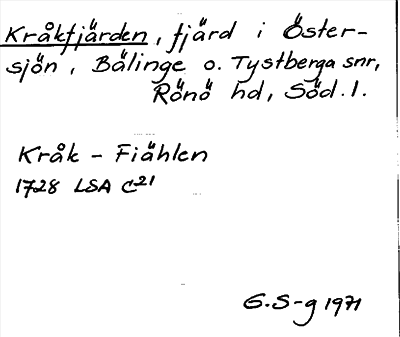 Kråkfjärden, fjärd i Öster-
sjön, Bälinge o. Tystberga snr,
Rönö hd, Söd. l.
Kråk - Fiählen
1728 LSA C21
G.S-g 1971